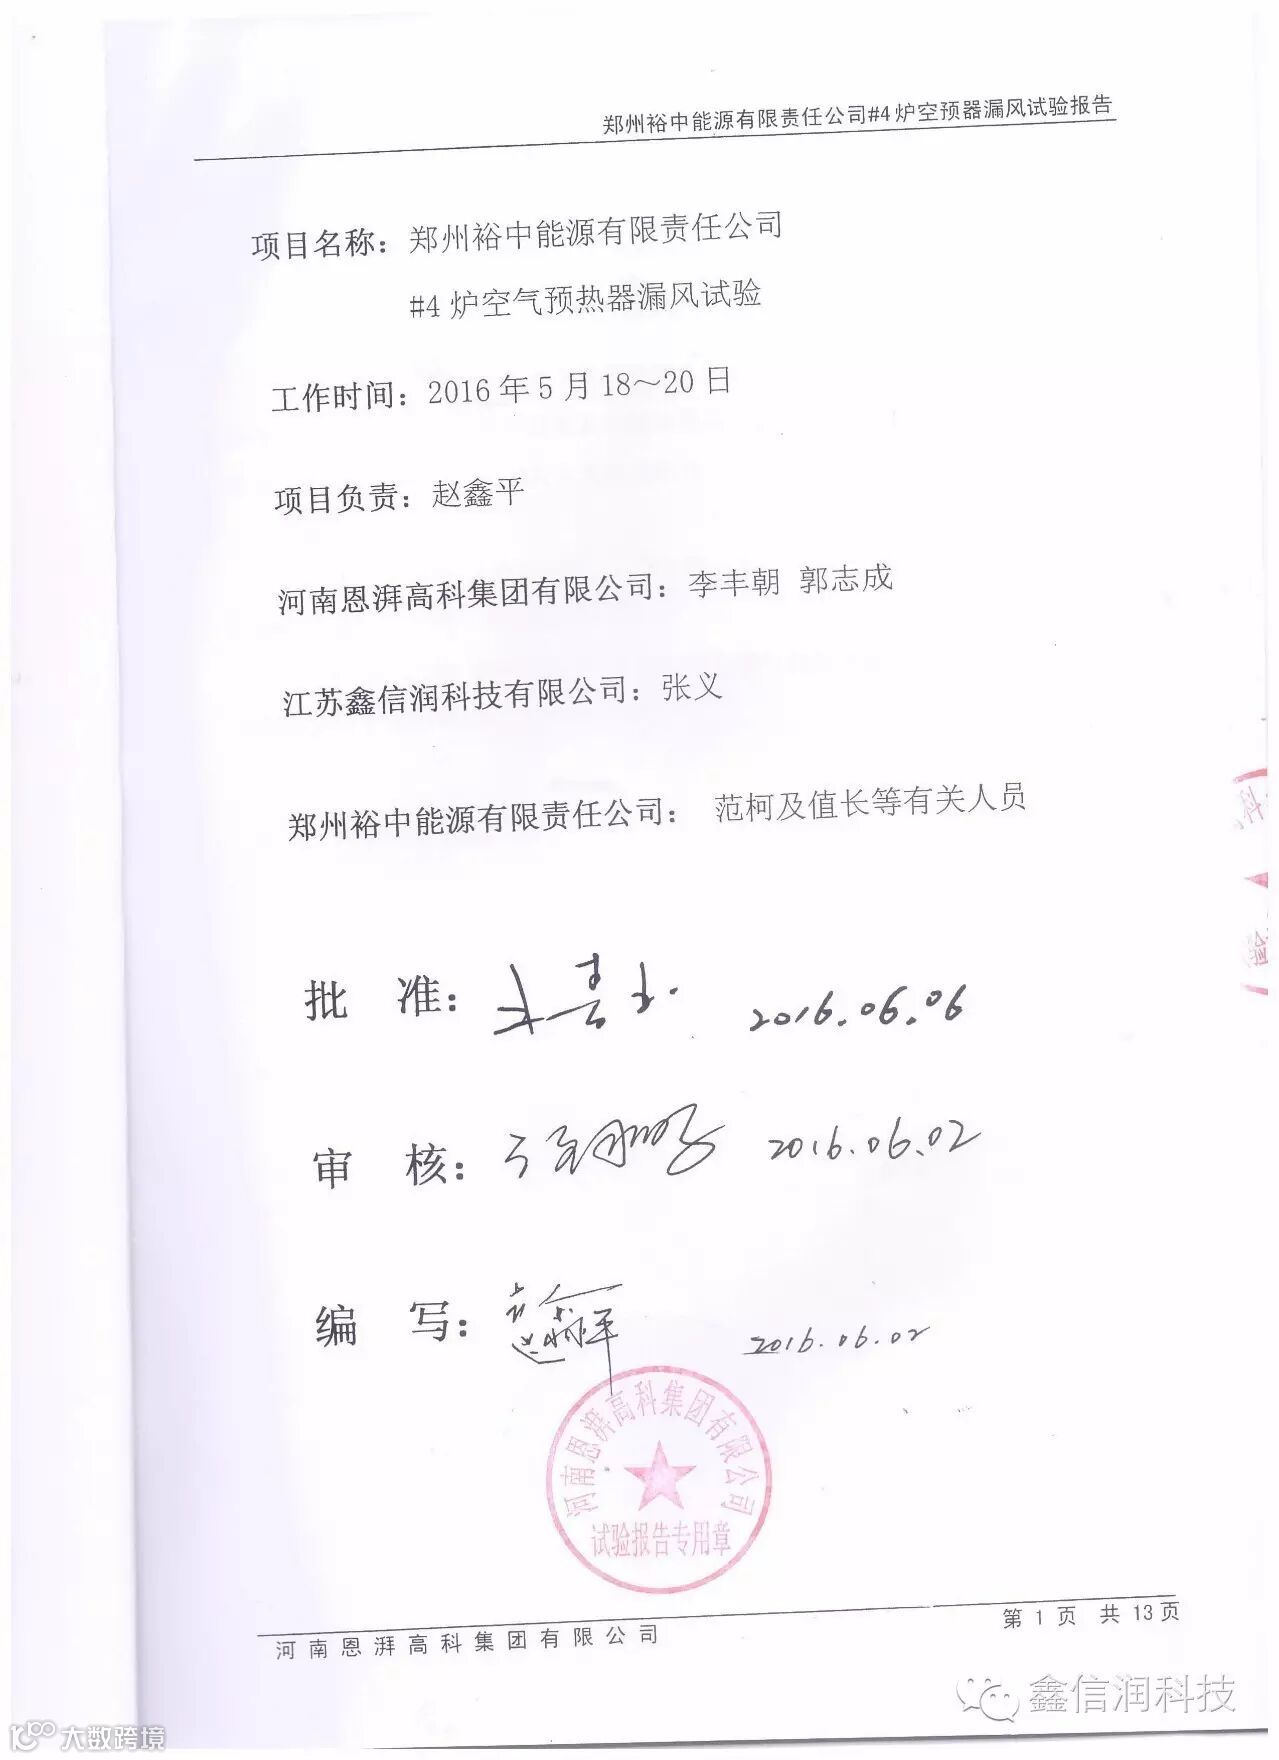 郑州裕中能源有限责任公司#4炉空预器漏风试验报告
项目名称：郑州裕中能源有限责任公司
#4炉空气预热器漏风试验
工作时间：2016年5月18～20日
项目负责：赵鑫平
河南恩湃高科集团有限公司：李丰朝 郭志成
江苏鑫信润科技有限公司：张义
郑州裕中能源有限责任公司： 范柯及值长等有关人员
批 准： 2016.06.06
审 核： 2016.06.02
编 写：赵鑫平 2016.06.02
河南恩湃高科集团有限公司
试验报告专用章
河南恩湃高科集团有限公司
第 1 页 共 13 页
鑫信润科技
大数跨境